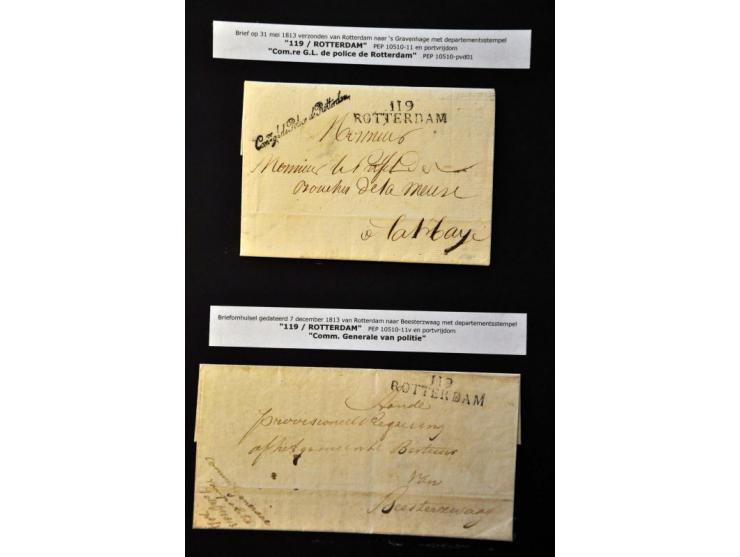 Brief op 31 mei 1813 verzonden van Rotterdam naar 's Gravenhage met departementsstempel
"119 / ROTTERDAM" PEP 10510-11 en portvrijdom
"Com.re G.L. de police de Rotterdam" PEP 10510-pvd01
119
ROTTERDAM
de Police de Rotterdam
Monsieur
Monsieur le Préfet des
Bouches de la meuse
a la haye
Briefomhulsel gedateerd 7 december 1813 van Rotterdam naar Beesterzwaag met departementsstempel
"119 / ROTTERDAM" PEP 10510-11v en portvrijdom
"Comm. Generale van politie"
119
ROTTERDAM
Aan de
provisioneele Regeering
of het gemeente Bestuur
van
Beesterzwaag